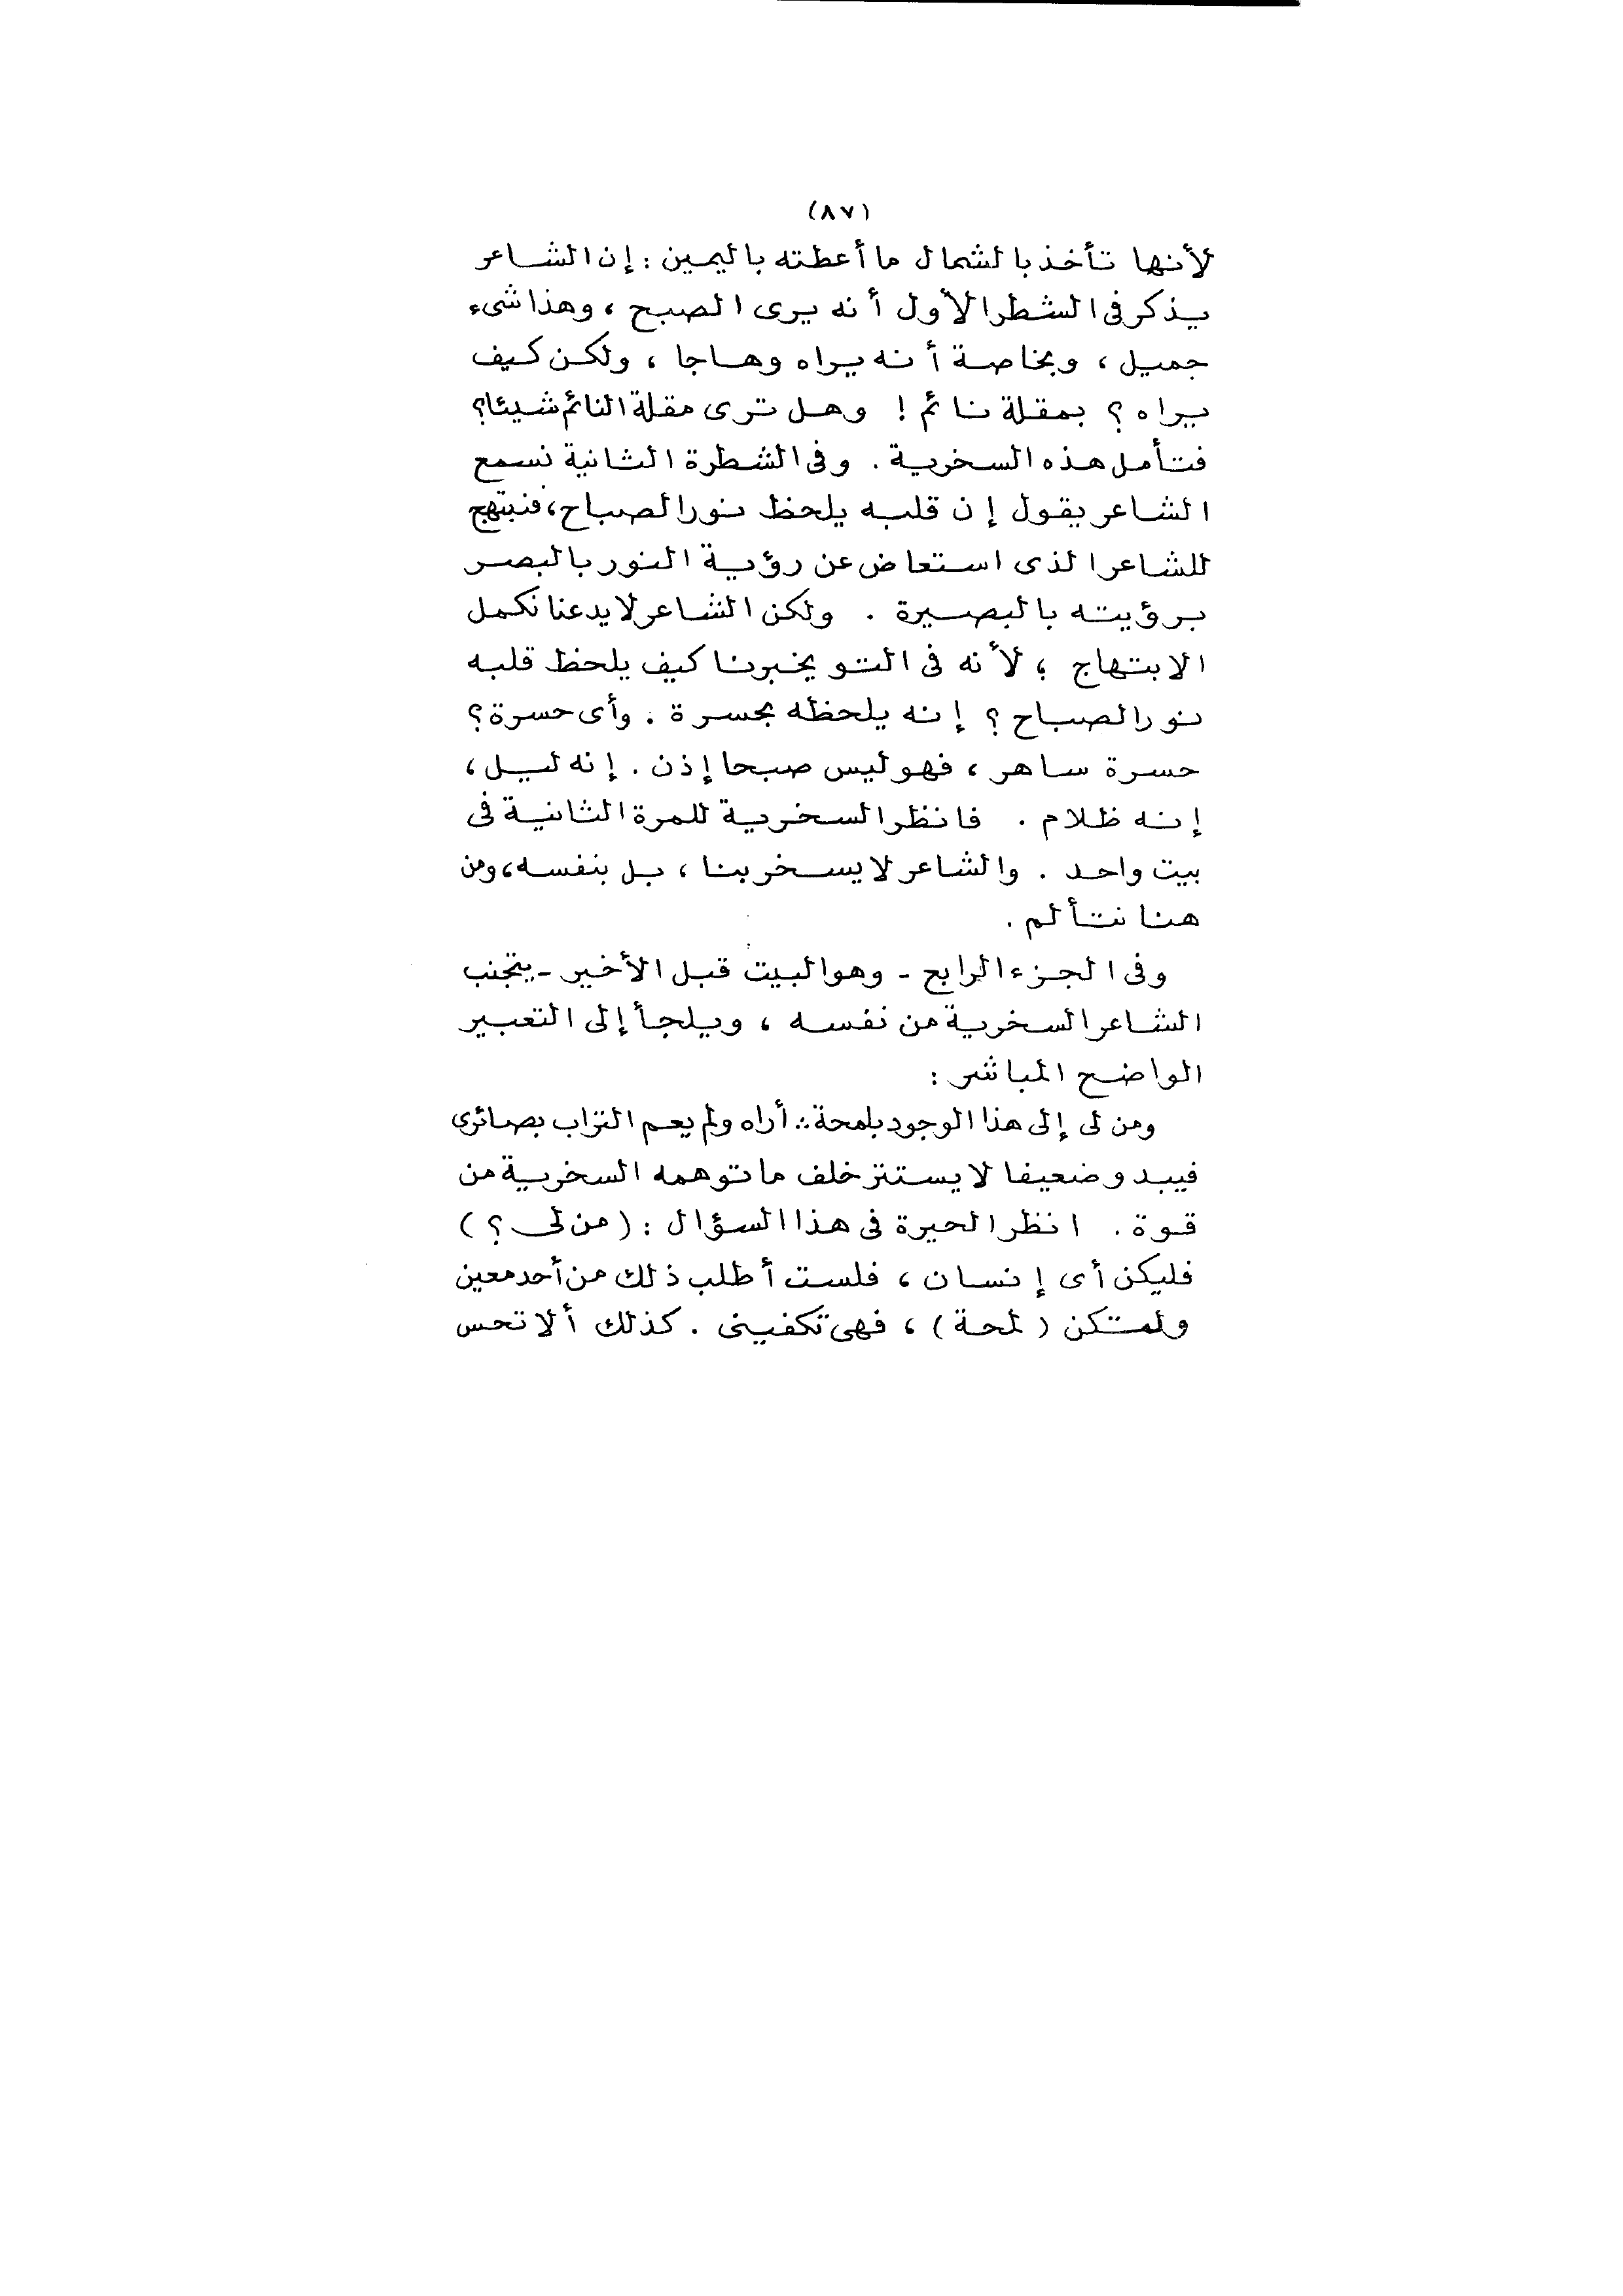 (٨٧)
لأنها تأخذ بالشمال ما أعطته باليمين : إن الشاعر
يذكر فى الشطر الأول أنه يرى الصبح ، وهذا شىء
جميل ، وبخاصة أنه يراه وهاجا ، ولكن كيف
يراه ؟ بمقلة نائم ! وهل ترى مقلة النائم شيئا؟
فتأمل هذه السخرية . وفى الشطرة الثانية نسمع
الشاعر يقول إن قلبه يلحظ نور الصباح ، فنبتهج
للشاعر الذى استعاض عن رؤية النور بالبصر
برؤيته بالبصيرة . ولكن الشاعر لا يدعنا نكمل
الابتهاج ؛ لأنه فى التو يخبرنا كيف يلحظ قلبه
نور الصباح ؟ إنه يلحظه بحسرة . وأى حسرة ؟
حسرة ساهر ، فهو ليس صبحا إذن . إنه ليل ،
إنه ظلام . فانظر السخرية للمرة الثانية فى
بيت واحد . والشاعر لا يسخر بنا ، بل بنفسه ، ومن
هنا نتألم .
وفى الجزء الرابع - وهو البيت قبل الأخير - يتجنب
الشاعر السخرية من نفسه ، ويلجأ إلى التعبير
الواضح المباشر :
ومن لى إلى هذا الوجود بلمحة ∴ أراه ولم يعم التراب بصائرى
فيبدو ضعيفا لا يستتر خلف ما توهمه السخرية من
قوة . انظر الحيرة فى هذا السؤال : ( من لى ؟ )
فليكن أى إنسان ، فلست أطلب ذلك من أحد معين
ولتكن ( لمحة ) ، فهى تكفينى . كذلك ألا تحس